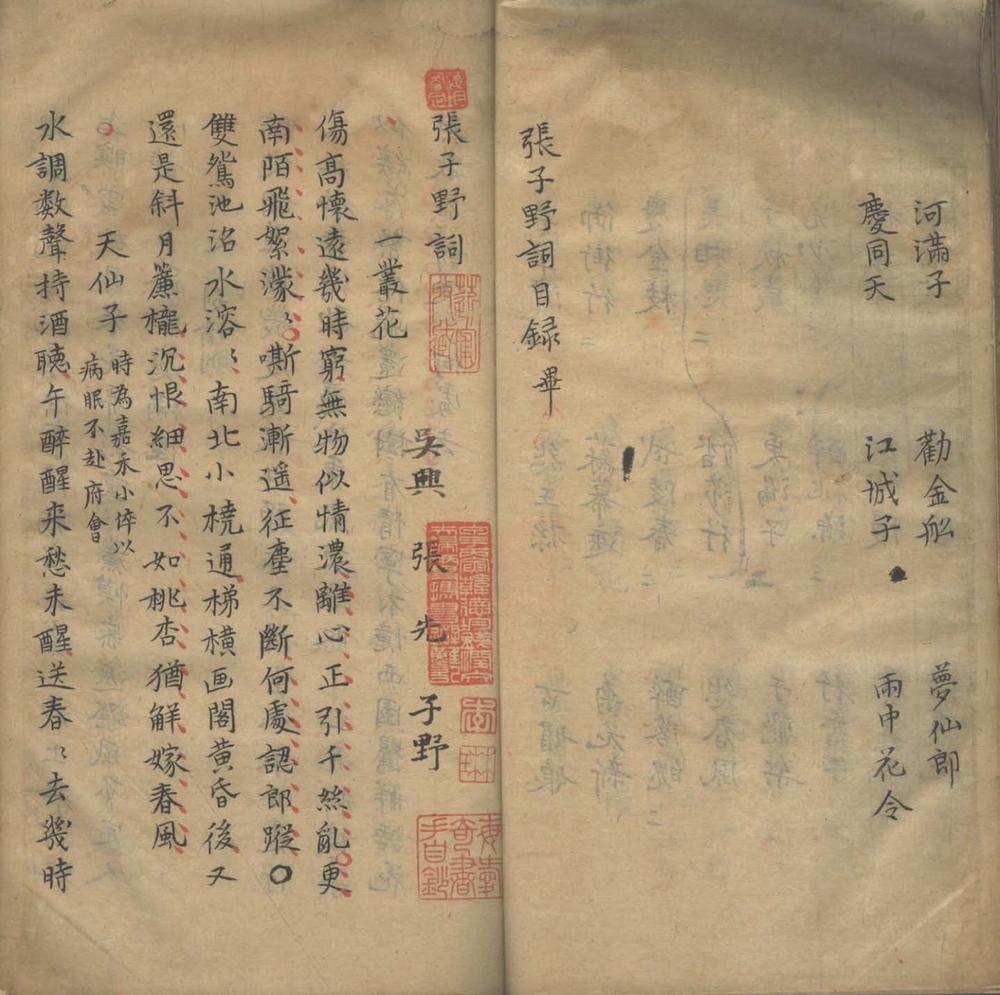 河滿子　勸金船　夢仙郎
慶同天　江城子　雨中花令
張子野詞目録 畢
張子野詞
吳興　張先　子野
一叢花
傷高懷遠幾時窮無物似情濃離心正引千絲亂更
南陌飛絮濛〻嘶騎漸遥征塵不斷何處認郎蹤〇
雙鴛池沼水溶〻南北小橈通梯橫画閣黄昏後又
還是斜月簾櫳沉恨細思不如桃杏猶解嫁春風
天仙子 時為嘉禾小倅以
病眠不赴府會
水調数聲持酒聽午醉醒来愁未醒送春〻去幾時